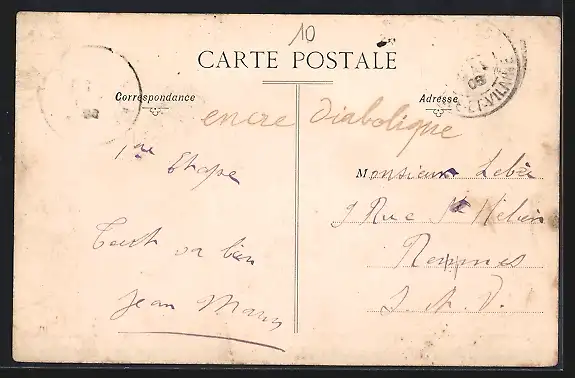 10
CARTE POSTALE
Correspondance
Adresse
08
ET-VILAINE
encre diabolique
1re Etape
Tout va bien
Jean
Monsieur
9 Rue St Hélier
Rennes
I. et V.